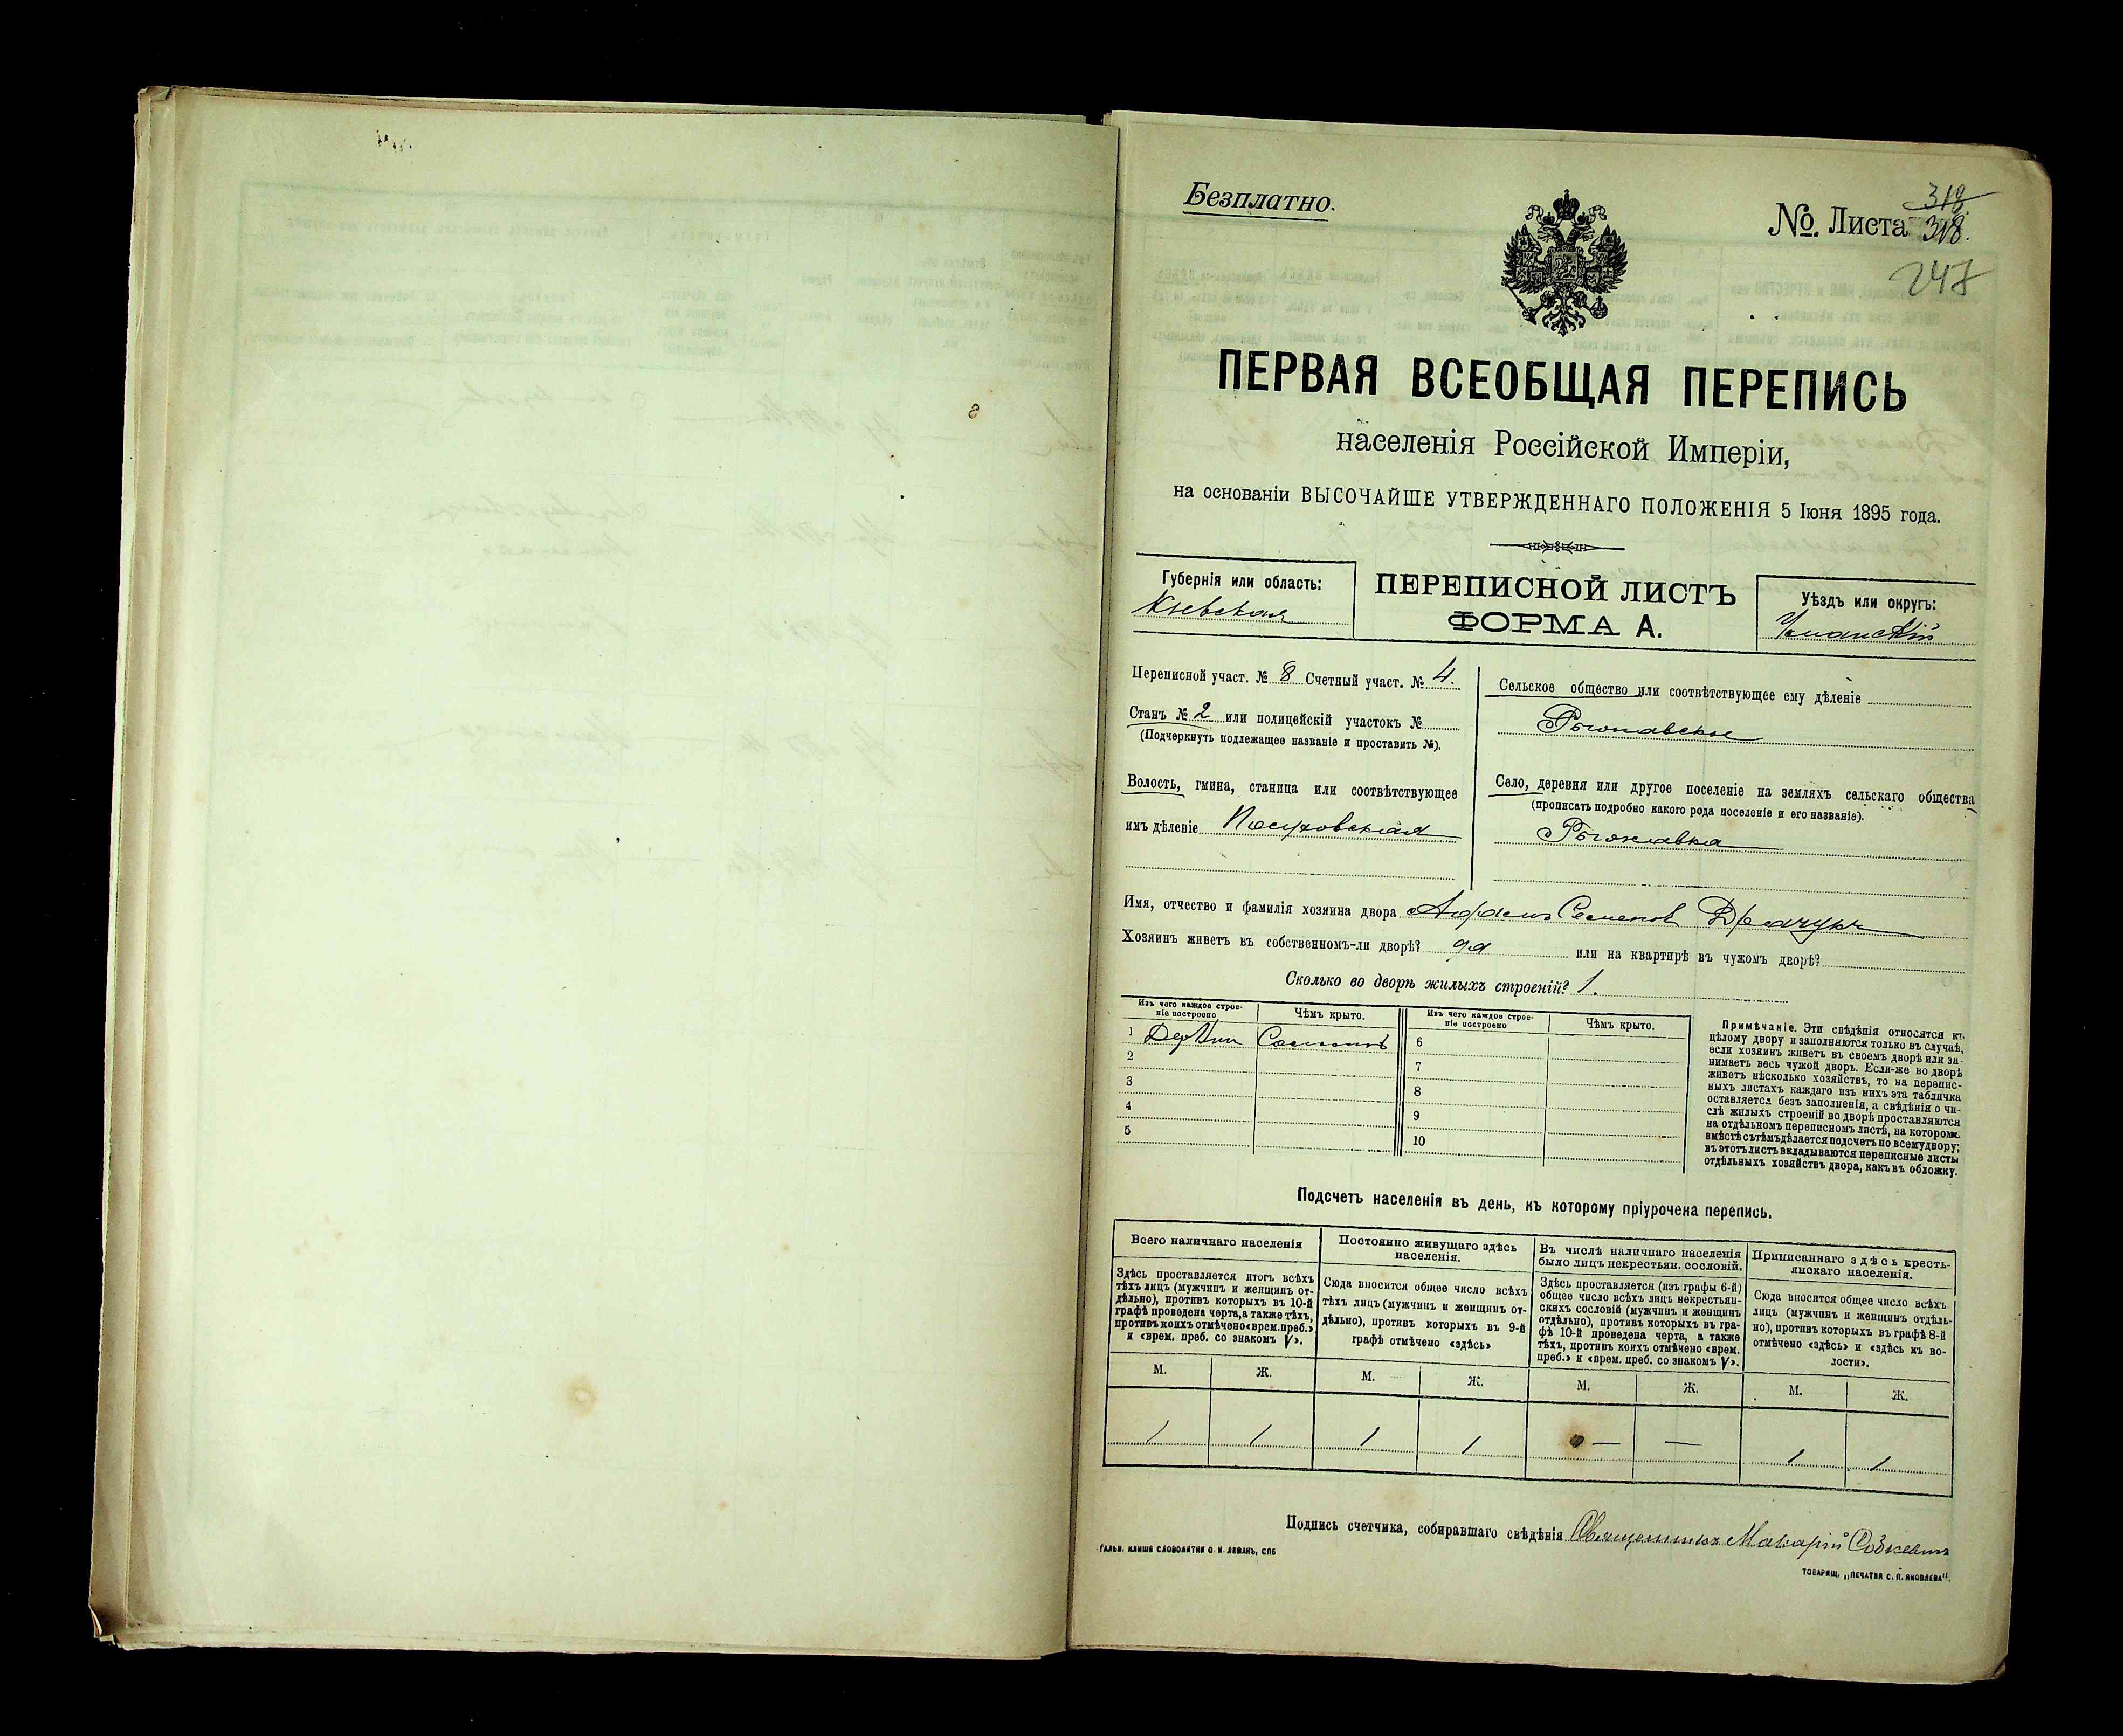 Безплатно.
№. Листа 318.
247
ПЕРВАЯ ВСЕОБЩАЯ ПЕРЕПИСЬ
населенія Россійской Имперіи,
на основаніи ВЫСОЧАЙШЕ УТВЕРЖДЕННАГО ПОЛОЖЕНІЯ 5 Іюня 1895 года.
Губернія или область:
Кіевская
ПЕРЕПИСНОЙ ЛИСТЪ
ФОРМА А.
Уѣздъ или округъ:
Уманскій
Переписной участ. № 8 Счетный участ. № 4.
Станъ № 2 или полицейскій участокъ №
(Подчеркнуть подлежащее названіе и проставить №).
Волость, гмина, станица или соотвѣтствующее
имъ дѣленіе
Сельское общество или соотвѣтствующее ему дѣленіе
Рыжавское
Село, деревня или другое поселеніе на земляхъ сельскаго общества
(прописать подробно какого рода поселеніе и его названіе).
Рыжавка
Имя, отчество и фамилія хозяина двора Семеновъ Драчукъ
Хозяинъ живетъ въ собственномъ-ли дворѣ? да или на квартирѣ въ чужомъ дворѣ?
Сколько во дворѣ жилыхъ строеній? 1.
Изъ чего каждое строе-
ніе построено
Чѣмъ крыто.
1
2
3
4
5
Изъ чего каждое строе-
ніе построено
Чѣмъ крыто.
6
7
8
9
10
Примѣчаніе. Эти свѣдѣнія относятся къ
цѣлому двору и заполняются только въ случаѣ,
если хозяинъ живетъ въ своемъ дворѣ или за-
нимаетъ весь чужой дворъ. Если-же во дворѣ
живетъ нѣсколько хозяйствъ, то на перепис-
ныхъ листахъ каждаго изъ нихъ эта табличка
оставляется безъ заполненія, а свѣдѣнія о чи-
слѣ жилыхъ строеній во дворѣ проставляются
на отдѣльномъ переписномъ листѣ, на которомъ
вмѣстѣ съ тѣмъ дѣлается подсчетъ по всему двору;
въ этотъ листъ вкладываются переписные листы
отдѣльныхъ хозяйствъ двора, какъ въ обложку.
Подсчетъ населенія въ день, къ которому пріурочена перепись.
Всего наличнаго населенія
Здѣсь проставляется итогъ всѣхъ
тѣхъ лицъ (мужчинъ и женщинъ от-
дѣльно), противъ которыхъ въ 10-й
графѣ проведена черта, а также тѣхъ,
противъ коихъ отмѣчено «врем. преб.»
и «врем. преб. со знакомъ V».
Постоянно живущаго здѣсь
населенія.
Сюда вносится общее число всѣхъ
тѣхъ лицъ (мужчинъ и женщинъ от-
дѣльно), противъ которыхъ въ 9-й
графѣ отмѣчено «здѣсь»
Въ числѣ наличнаго населенія
было лицъ некрестьян. сословій.
Здѣсь проставляется (изъ графы 6-й)
общее число всѣхъ лицъ некрестьян-
скихъ сословій (мужчинъ и женщинъ
отдѣльно), противъ которыхъ въ гра-
фѣ 10-й проведена черта, а также
тѣхъ, противъ коихъ отмѣчено «врем.
преб.» и «врем. преб. со знакомъ V».
Приписаннаго здѣсь кресть-
янскаго населенія.
Сюда вносится общее число всѣхъ
лицъ (мужчинъ и женщинъ отдѣль-
но), противъ которыхъ въ графѣ 8-й
отмѣчено «здѣсь» и «здѣсь къ во-
лости».
М. Ж. М. Ж. М. Ж. М. Ж.
1 1 1 1 — — 1 1
Подпись счетчика, собиравшаго свѣдѣнія Священникъ Макарій
ГАЛЬВ. КЛИШЕ СЛОВОЛИТНИ О. И. ЛЕМАНЪ, СПБ
ТОВАРИЩ. „ПЕЧАТНЯ С. П. ЯКОВЛЕВА".